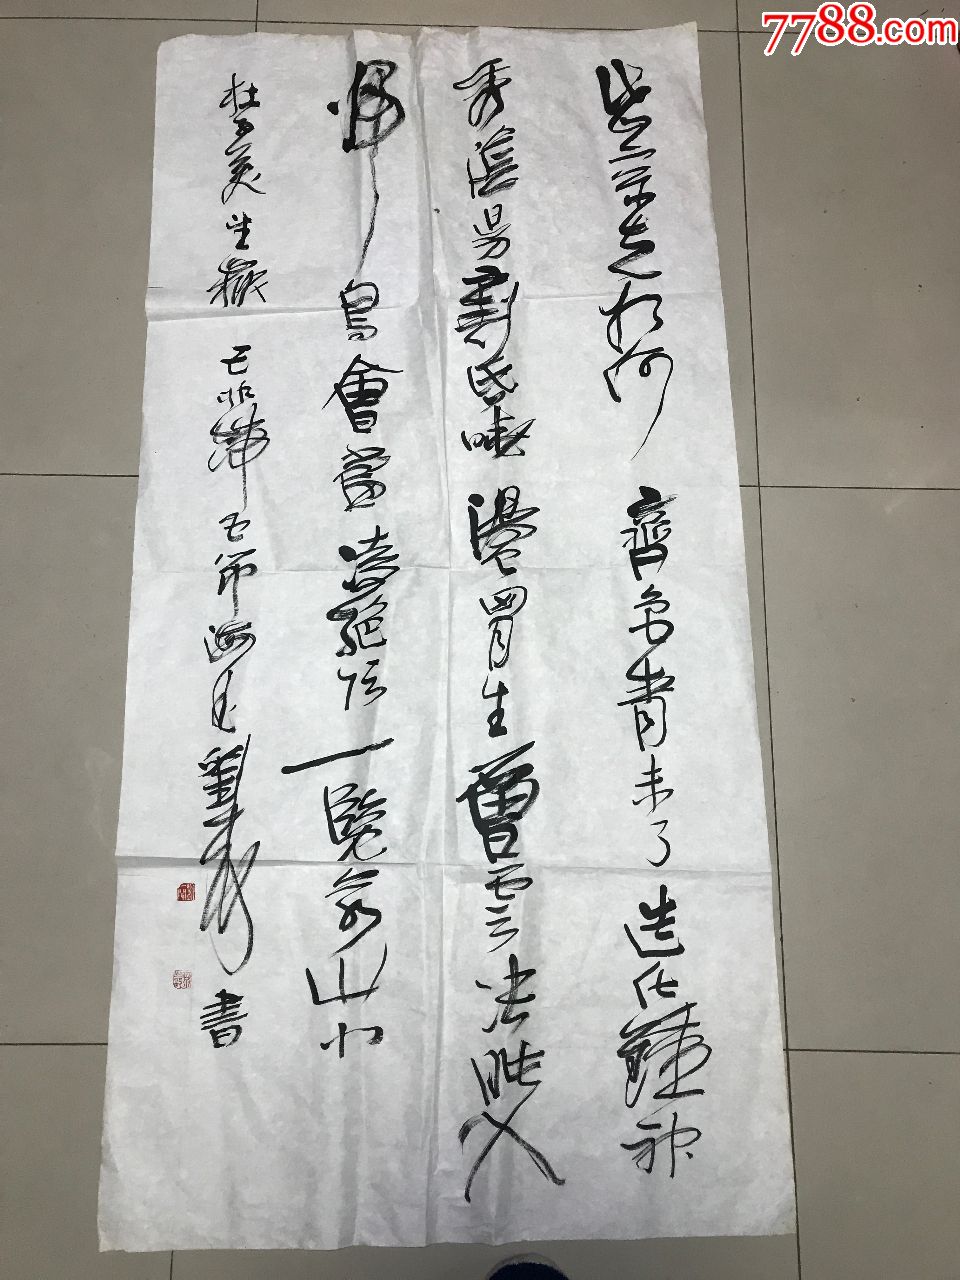 7788.com
岱宗夫如何齊魯青未了造化鍾神
秀陰陽割昏曉盪胸生曾雲決眥入
歸鳥會當凌絕頂一覽衆山小
杜子美望嶽 劉 書